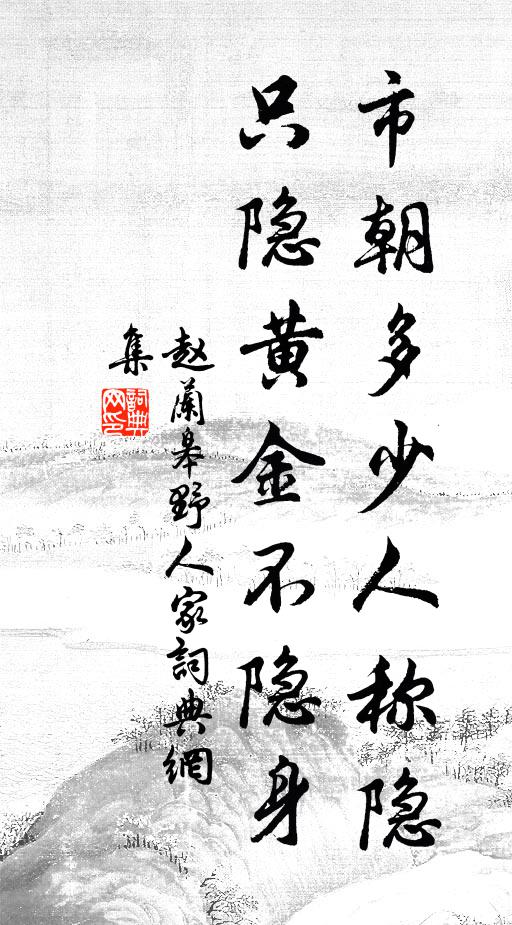 市朝多少人称隐
只隐黄金不隐身
赵蘭皋野人家詞典網
集
詞典
网印